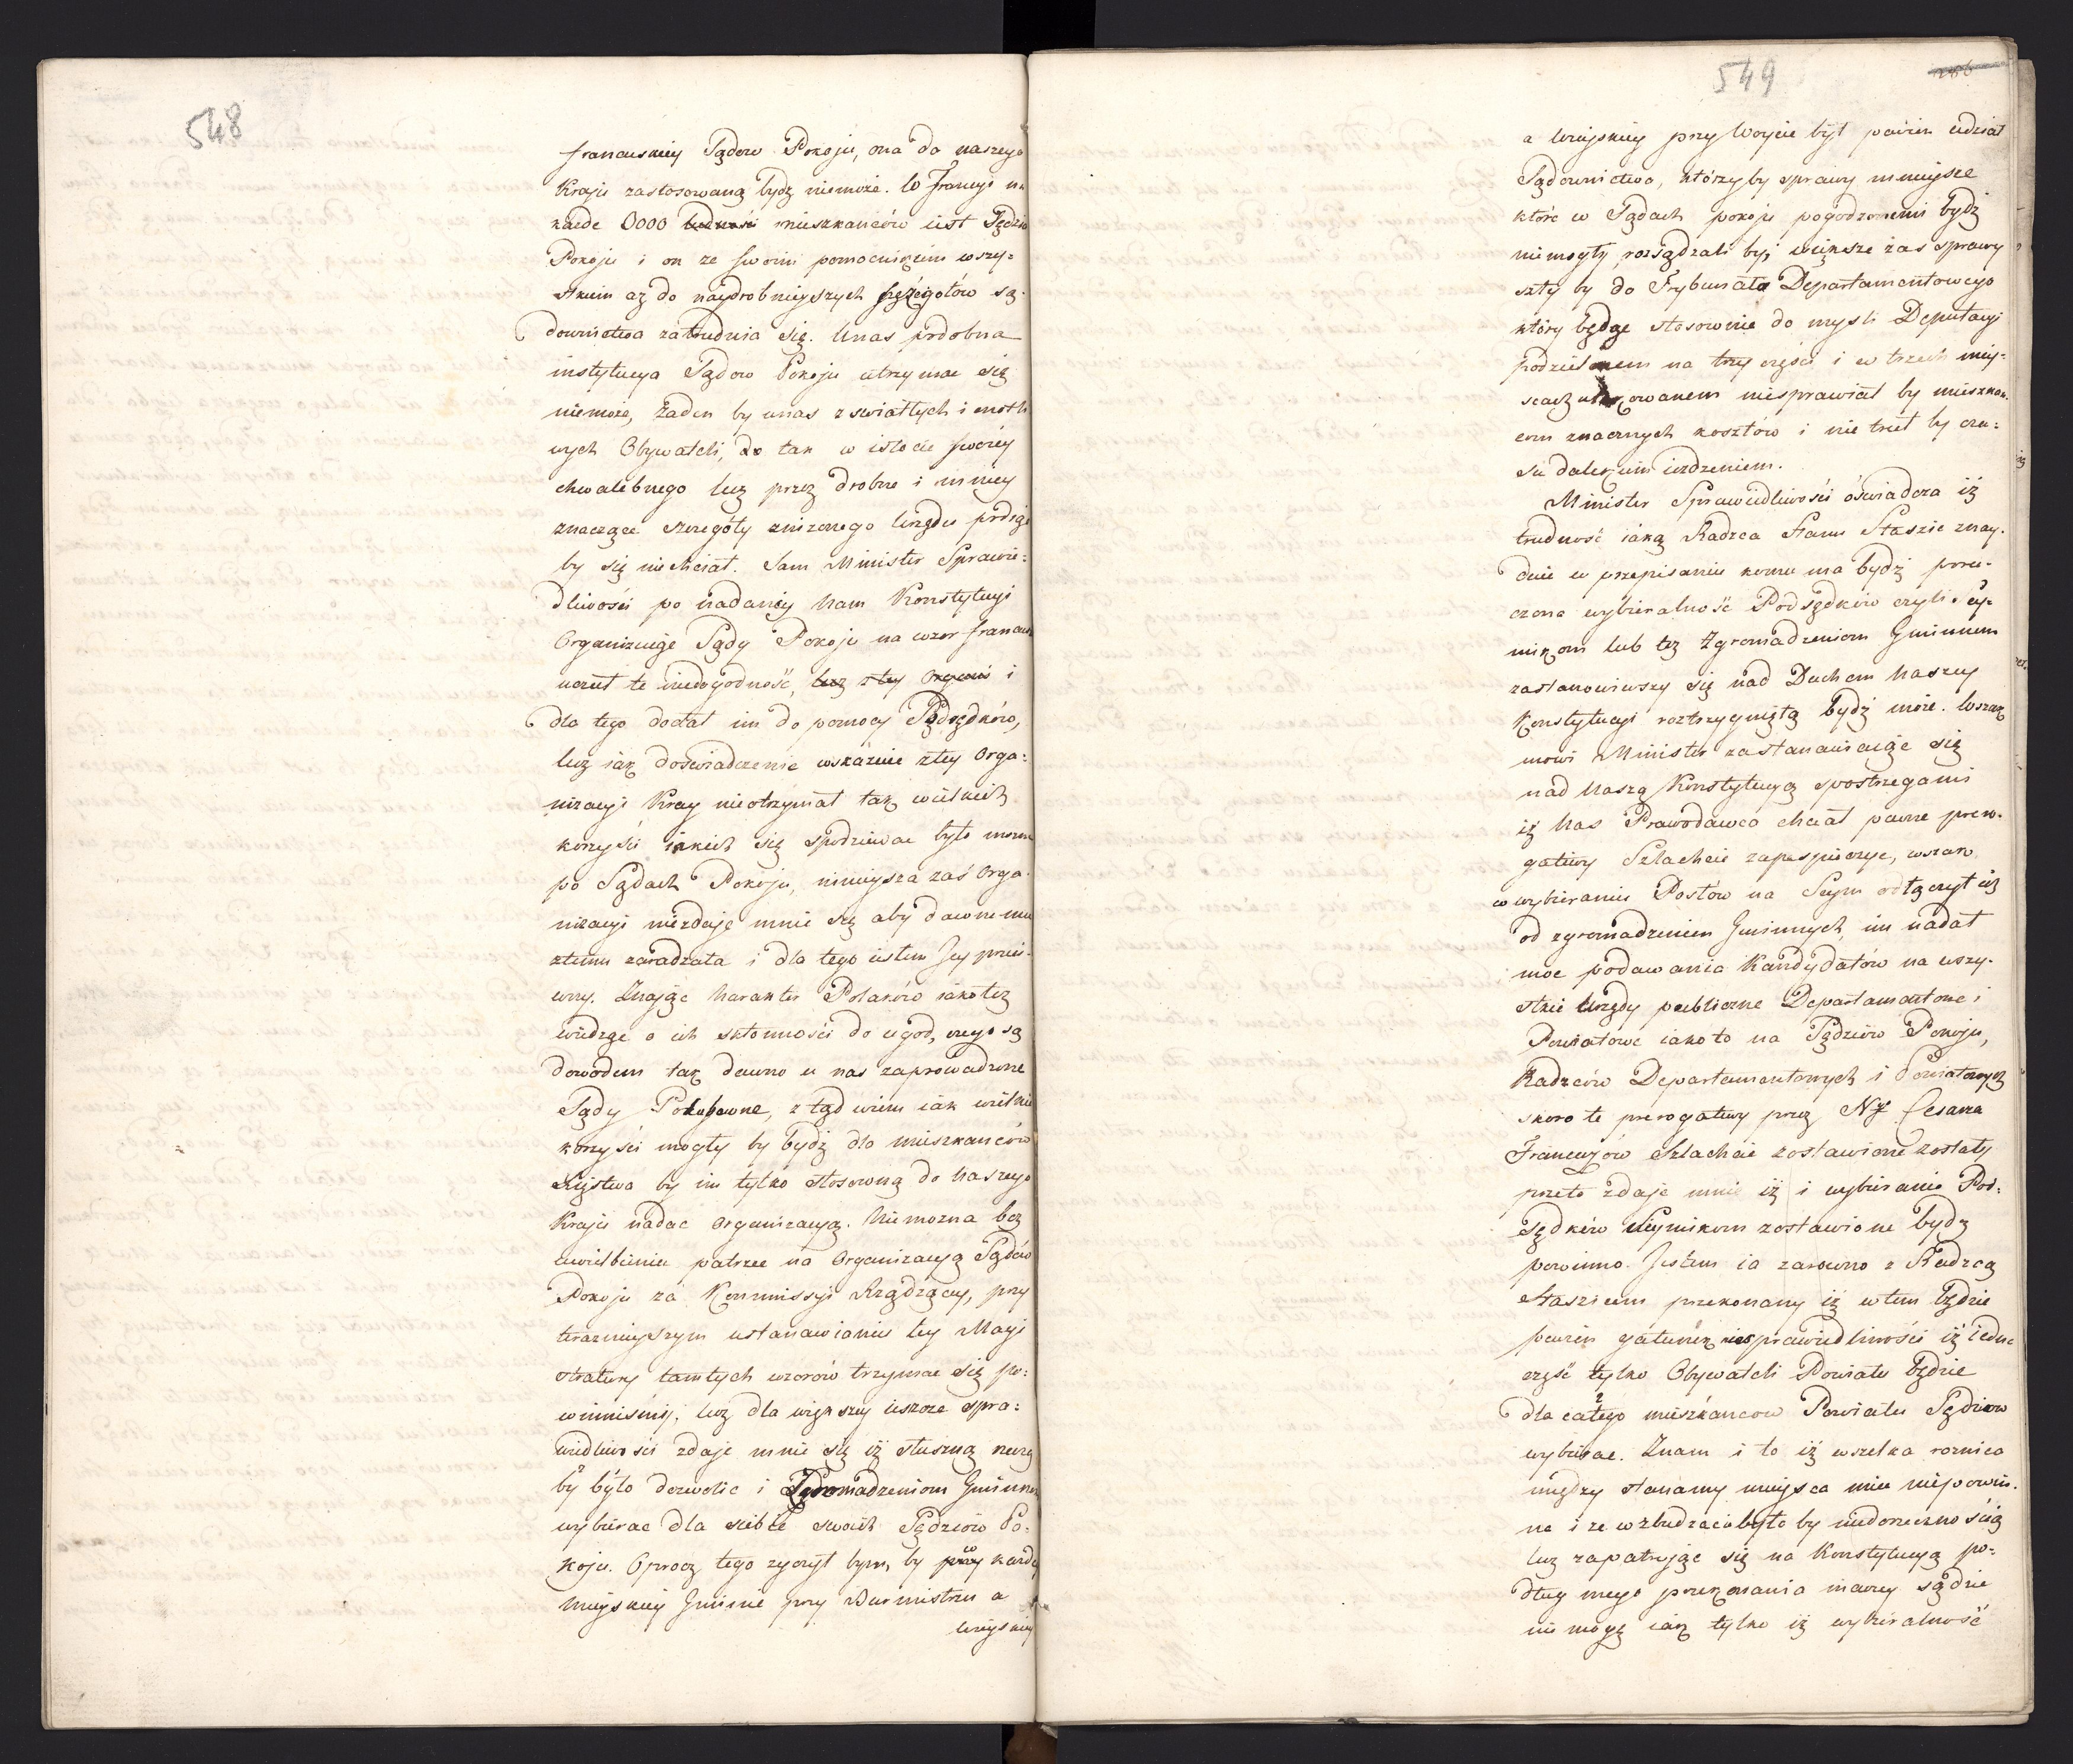 548
francuskiey Sądow Pokoju, ona do naszego
Kraju zastosowaną bydź niemoże. W Francyi na
każde 3000 ludności mieszkańców iest Sędzia
Pokoju i on ze swoim pomocnikiem wszy=
stkiem aż do naydrobnieyszych szczegółów są=
downictwa zatrudnia się. Unas podobna
instytucya Sądow Pokoju utrzymac się
niemoże, żaden by unas z swiatłych i cnotli
wych Obywateli, do tak w istocie swoiey
chwalebnego lecz przez drobne i mniey
znaczące szczegóły zniżonego Urzędu podiąć
by się niechciał. Sam Minister Sprawie=
dliwości po nadaney Nam Konstytucyi
Organizuiąc Sądy Pokoju na wzor francuz
uczuł te niedogodność, lecz z tey i
dla tego dodał im do pomocy Podsędków,
lecz iak doświadczenie wskazuie z tey Orga=
nizacyi Kray nieotrzymał tak wielkich
korzyści iakich się spodziewac było można
po Sądach Pokoju, ninieysza zaś Orga
nizacyi niezdaje mnie się aby dawnemu
złemu zaradzała i dla tego iestem Jey przeci=
wny. Znaiącharakter Polaków iako też
widząc o ich skłonności do ugod, czego są
dowodem tak dawno u nas zaprowadzone
Sądy Polubowne, z tąd wiem iak wielkie
korzyści mogły by bydź dla mieszkańców
Xięstwa by im tylko stosowną do Naszego
Kraju nadac Organizacyą. Niemożna bez
uwielbienia patrzec na Organizacyą Sądów
Pokoju za Kommissyi Rządzącey, przy
teraznieyszym ustanawianiu tey Magi
stratury tamtych wzorów trzymac się po=
winniśmy, lecz dla większey ieszcze spra=
wiedliwości zdaje mnie się iż słuszną rzeczą
by było dozwolic i Zgromadzeniom Gminnem
wybierac dla siebie swoich Sędziów Po=
koju. Oprocz tego życzył bym, by w każdey
mieyskiey Gminie przy Burmistrzu a
wieyskiey
549
a wieyskiey przy Woycie był pewien udział
Sądownictwa, którzyby sprawy mnieysze
które w Sądach pokoju pogodzonemi bydź
niemogły rozsądzali by, większe zas sprawy
szły by do Trybunału Departamentowego
który będąc stosownie do mysli Deputacyi
podzielonem na trzy części i w trzech miey=
scach niesprawiał by mieszkań
com znacznych kosztów i nie truł by cza=
su dalekiem ieżdzeniem.
Minister Sprawiedliwości óswiadcza iż
trudność iaką Radzca Stanu Staszic znay=
duie w przepisaniu komu ma bydź poru=
czona wybieralność Podsędków czyli Sey=
mikom lub też Zgromadzeniom Gminnem
zastanowiwszy się nad Duchem Naszey
Konstytucyi roztrzygniętą bydź może. Wszak
mowi Minister zastanawiaiąc się
nad Naszą Konstytucyą spostrzegamy
iż Nas Prawodawca chciał pewne prero=
gatiwy Szlachcie zapespieczyc, wszak
w wybieraniu Posłow na Seym odłączył ią
od zgromadzeniem Gminnych, im nadał
moc podawania Kandydatów na wszy=
stkie Urzędy publiczne Departamentowe i
Powiatowe iako to na Sędziów Pokoju,
Radzców Departamentowych i Powiatowych
skoro te prerogatiwy przez NJ. Cesarza
Francuzów Szlachcie zostawione zostały
przeto zdaje mnie iż i wybieranie Pod=
sędków Seymikom zostawione bydź
powinno. Jestem ia zarowno z Radzcą
Staszicem przekonany iż wtem będzie
pewien gatunek niesprawiedliwości iż iedna
część tylko Obywateli Powiatu będzie
dla całego mieszkancow Powiatu Sędziów
wybierac. Znam i to iż wszelka roznica
między stanamy mieysca miec niepowin=
na i że wzbudzac by niedorzecznością
lecz zapatruiąc się na Konstytucyą po=
dług mego przekonania inaczey sądzic
nie mogę iak tylko iż wybieralność